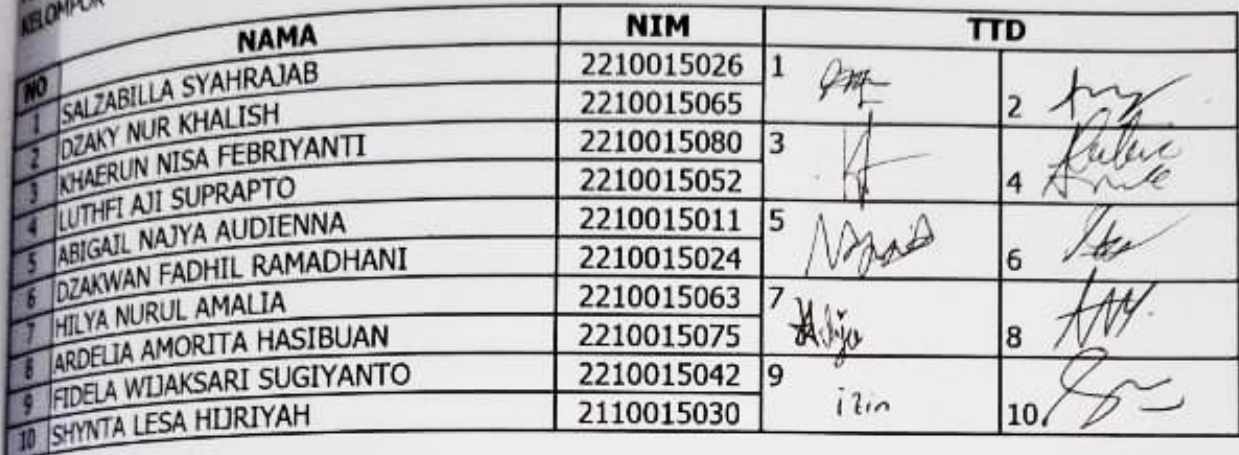 KELOMPOK
NO NAMA NIM TTD
1 SALZABILLA SYAHRAJAB 2210015026 1
2 DZAKY NUR KHALISH 2210015065 2
3 KHAERUN NISA FEBRIYANTI 2210015080 3
4 LUTHFI AJI SUPRAPTO 2210015052 4
5 ABIGAIL NAJYA AUDIENNA 2210015011 5
6 DZAKWAN FADHIL RAMADHANI 2210015024 6
7 HILYA NURUL AMALIA 2210015063 7
8 ARDELIA AMORITA HASIBUAN 2210015075 8
9 FIDELA WIJAKSARI SUGIYANTO 2210015042 9 izin
10 SHYNTA LESA HIJRIYAH 2110015030 10